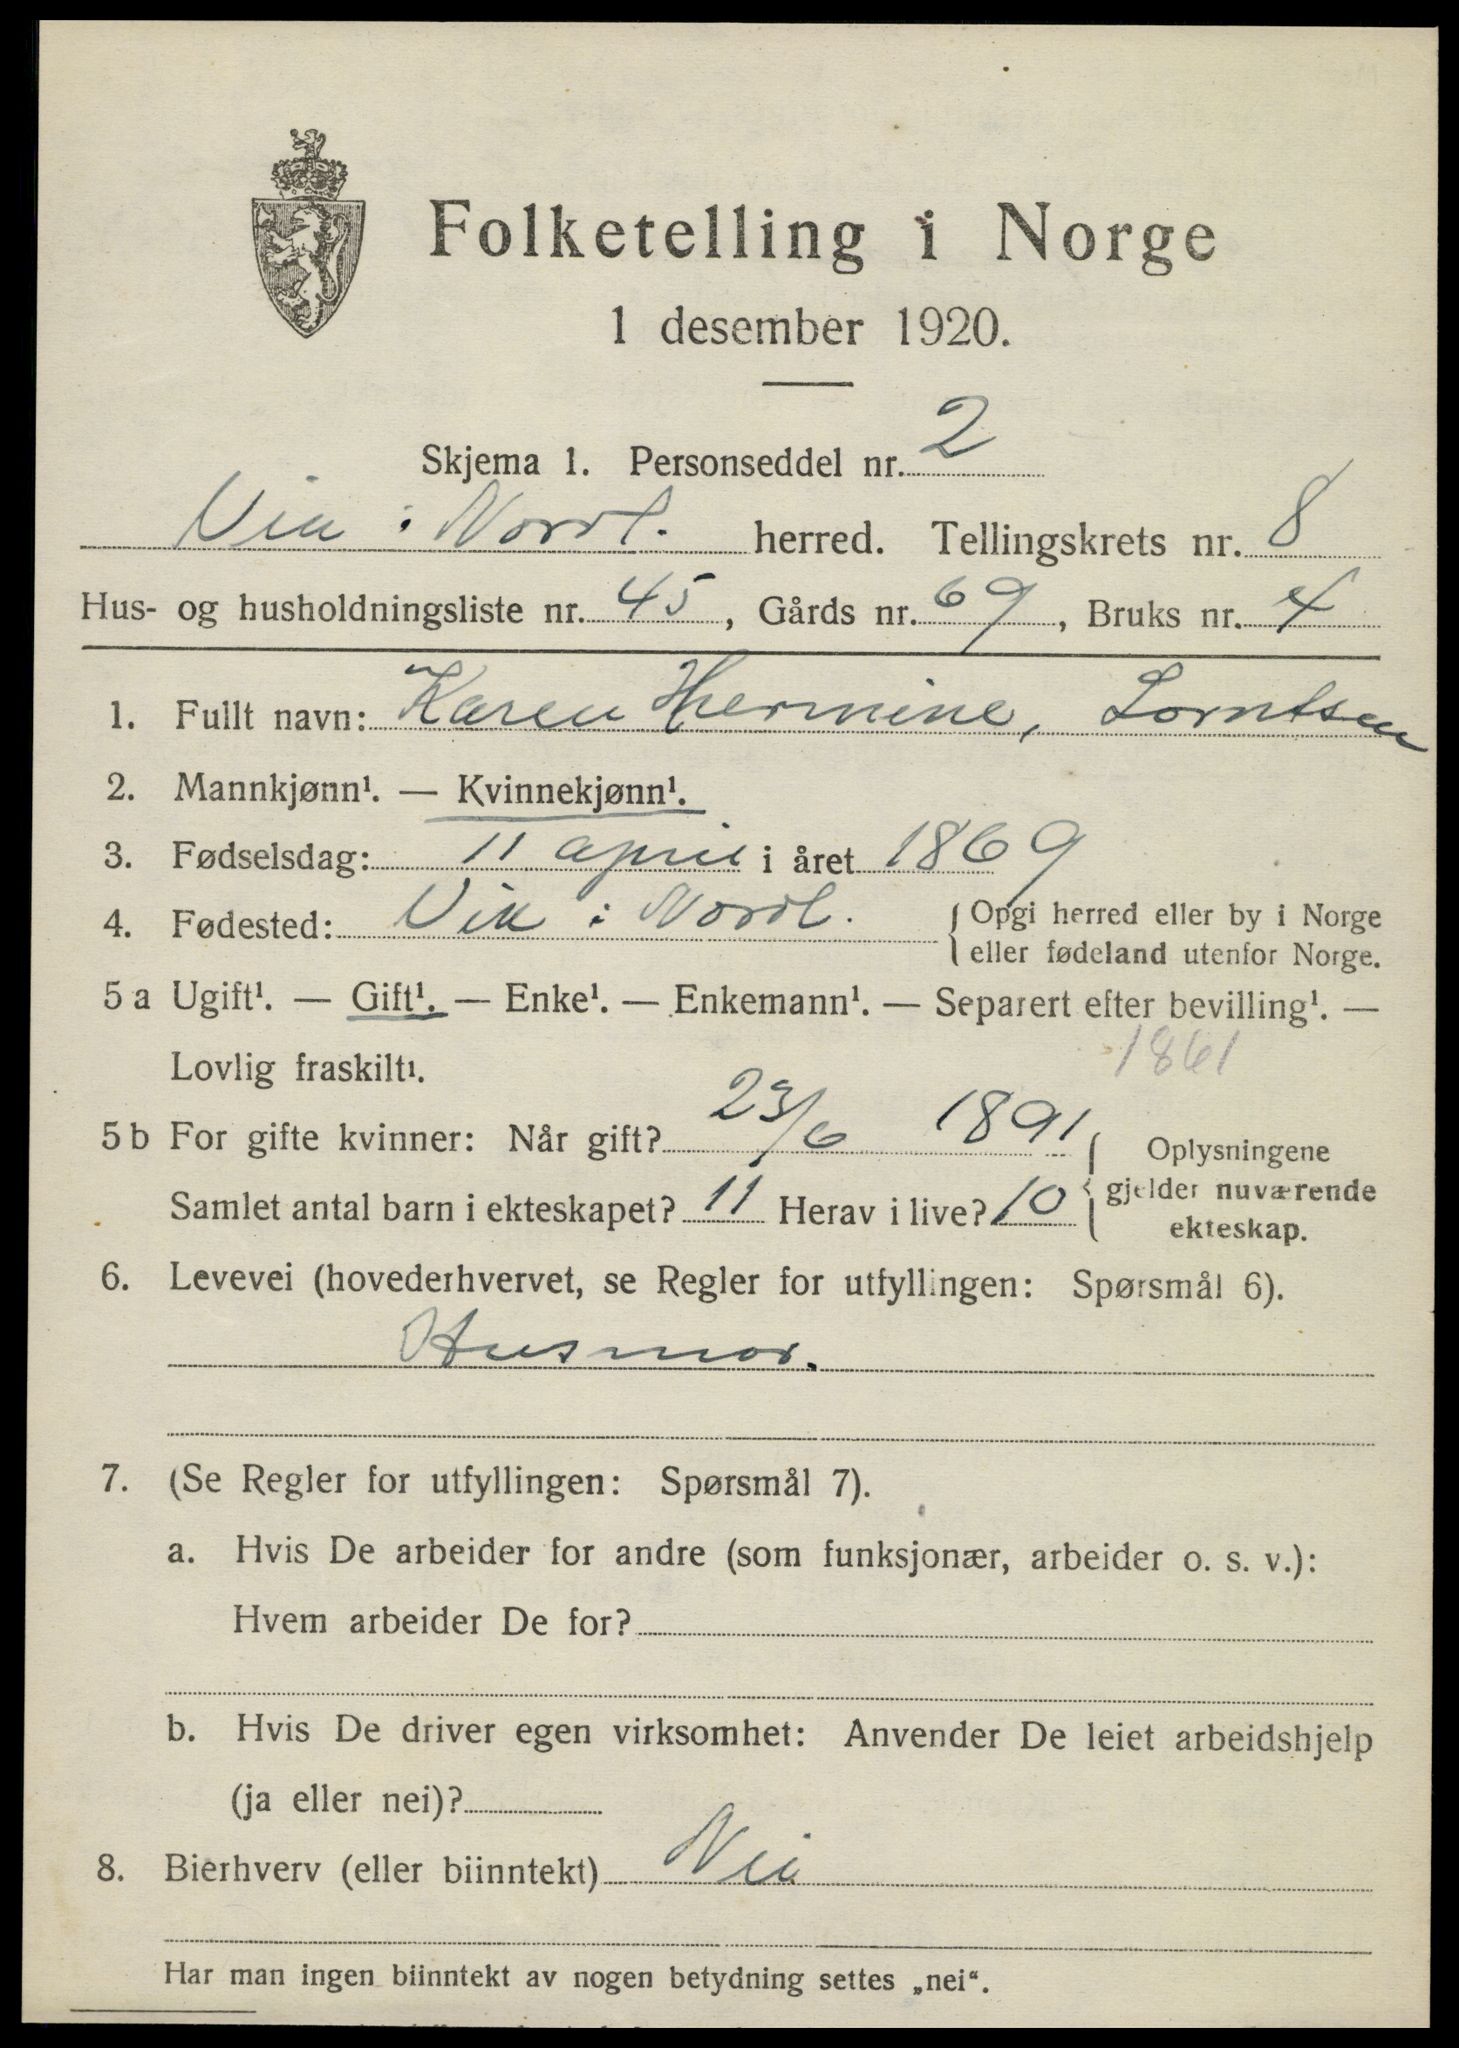 Folketelling i Norge
1 desember 1920.
Skjema 1. Personseddel nr. 2
Vik i Nordl. herred. Tellingskrets nr. 8
Hus- og husholdningsliste nr. 45, Gårds nr. 69, Bruks nr. 4
1. Fullt navn: Karen Hermine, Lorntsen
2. Mannkjønn¹. — Kvinnekjønn¹.
3. Fødselsdag: 11 april i året 1869
4. Fødested: Vik i Nordl. { Opgi herred eller by i Norge
eller fødeland utenfor Norge.
5 a Ugift¹. — Gift¹. — Enke¹. — Enkemann¹. — Separert efter bevilling¹. —
Lovlig fraskilt¹. 1861
5 b For gifte kvinner: Når gift? 23/6 1891 { Oplysningene
Samlet antal barn i ekteskapet? 11 Herav i live? 10 gjelder nuværende
ekteskap.
6. Levevei (hovederhvervet, se Regler for utfyllingen: Spørsmål 6).
Husmor.
7. (Se Regler for utfyllingen: Spørsmål 7).
a. Hvis De arbeider for andre (som funksjonær, arbeider o. s. v.):
Hvem arbeider De for?
b. Hvis De driver egen virksomhet: Anvender De leiet arbeidshjelp
(ja eller nei)?
8. Bierhverv (eller biinntekt) Nei
Har man ingen biinntekt av nogen betydning settes „nei“.